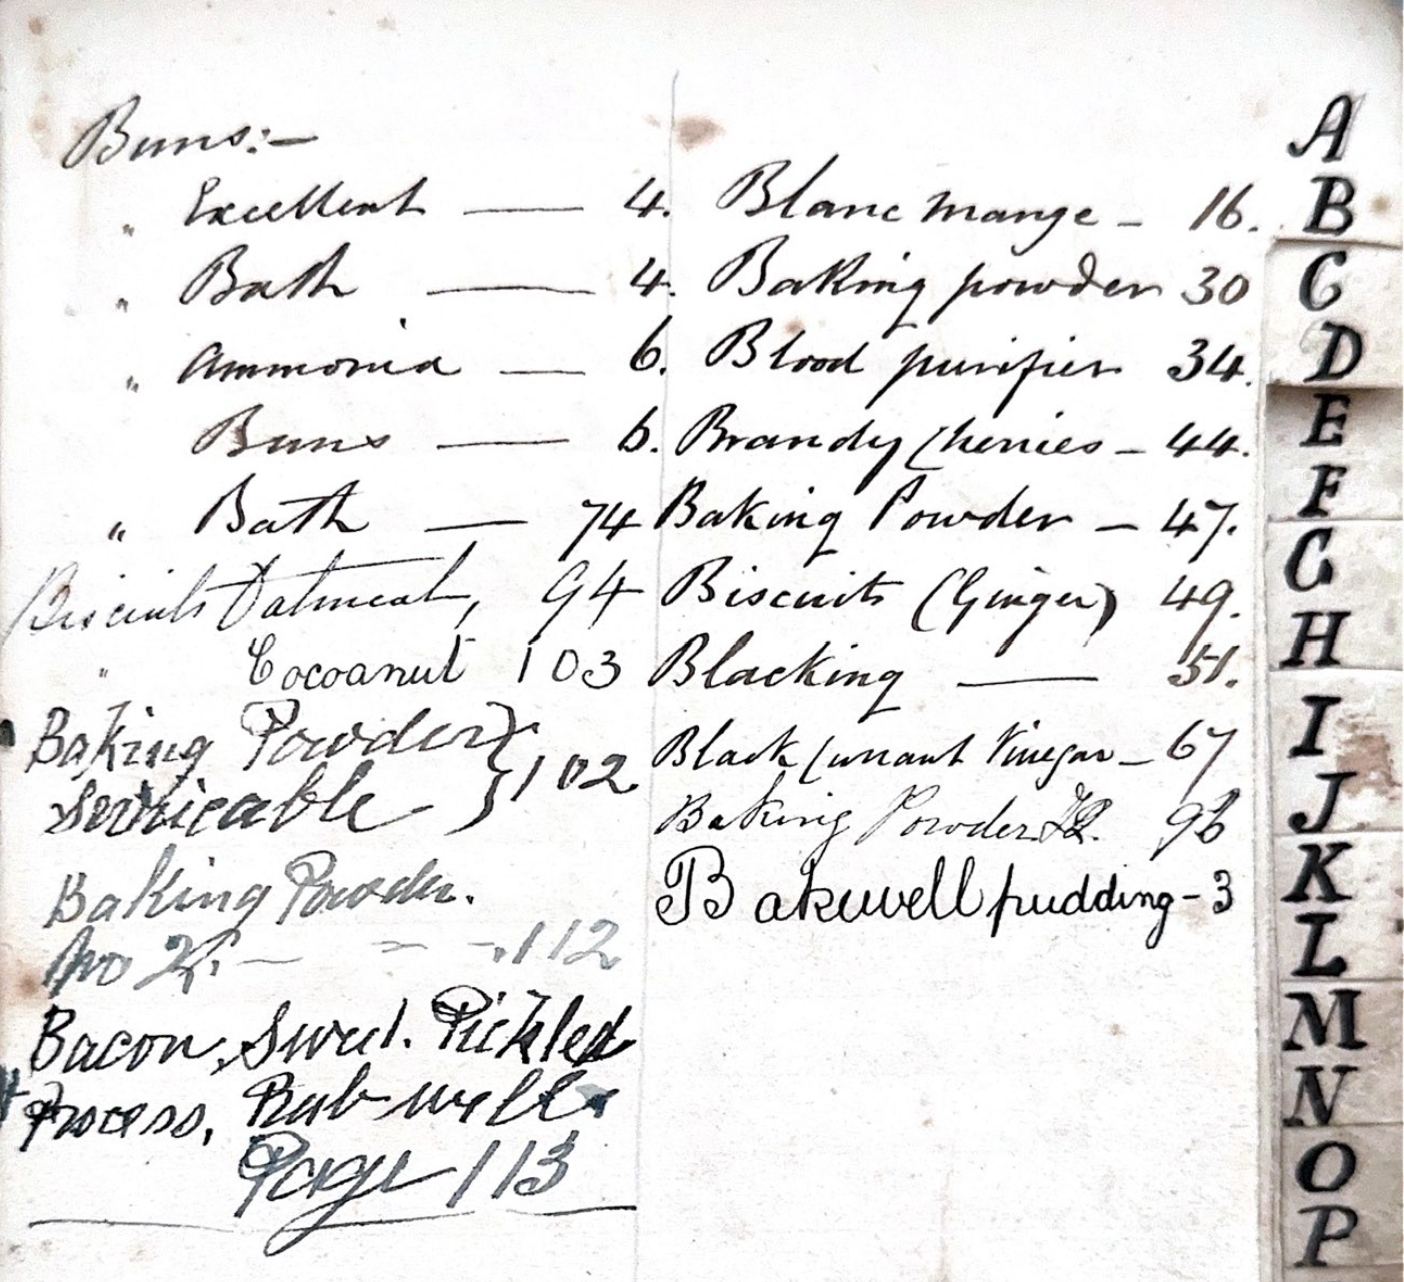 Buns:-
" Excellent — 4.
" Bath — 4.
" Ammonia — 6.
Buns — 6.
" Bath — 74
Biscuits Oatmeal, 94
" Cocoanut 103
Baking Powder } 102
Servicable
Baking Powder.
No 2. - - - 112
Bacon, Sweet. Pickled
Process, Rub well
Page 113
Blanc mange - 16.
Baking powder 30
Blood purifier 34.
Brandy Cherries - 44.
Baking Powder - 47.
Biscuits (Ginger) 49.
Blacking — 51.
Black Currant Vinegar - 67
Baking Powder 96
Bakewell pudding - 3
A
B
C
D
E
F
G
H
I
J
K
L
M
N
O
P